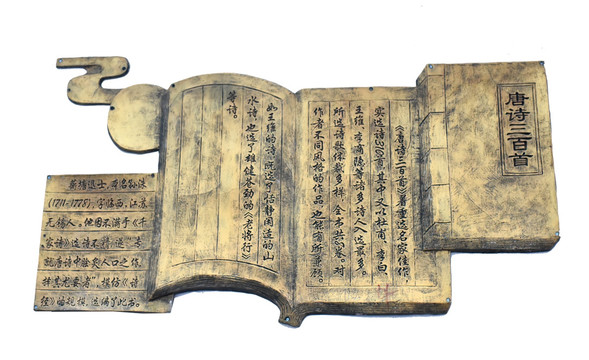 唐诗三百首
《唐诗三百首》着重选名家佳作，
实选诗首，其中又以杜甫、李白、
王维、李商隐等诸多诗人入选最多。
所选诗歌体裁多样，全书共卷。对
作者不同风格的作品，也能有所兼顾。
如王维的诗，既选了恬静闲适的山
水诗，也选了雄健苍劲的《老将行》
等诗。
蘅塘退士，原名孙洙
(1711-1778)，字临西，江苏
无锡人。他因不满于《千
家诗》选诗不精，遂“专
就唐诗中脍炙人口之作，
择其尤要者”，模仿《诗
经》的规模，选编了此书。